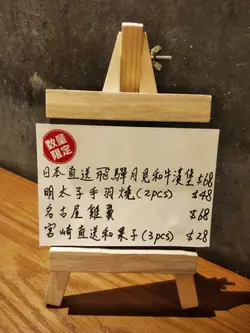 數量
限定
日本直送飛驒月見和牛漢堡 $68
明太子手羽燒(2pcs) $48
名古屋雞翼 $68
宮崎直送和菓子(3pcs) $28